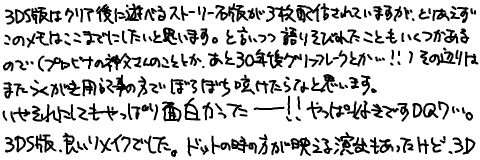 3DS版はクリア後に遊べるストーリー石版が3枚配信されていますが、とりあえず
このメモはここまでにしたいと思います。と言いつつ語りそびれたこともいくつかある
ので(プロビナの神父さんのこととか、あと30年後グリンフレークとかー!!)その辺りは
またらくがき用記事の方でぼろぼろ呟けたらなと思います。
いやそれにしてもやっぱり面白かったーー!!やっぱり好きですDQ7い。
3DS版、良いリメイクでした。ドットの時の方が映える演出もあったけど、3D